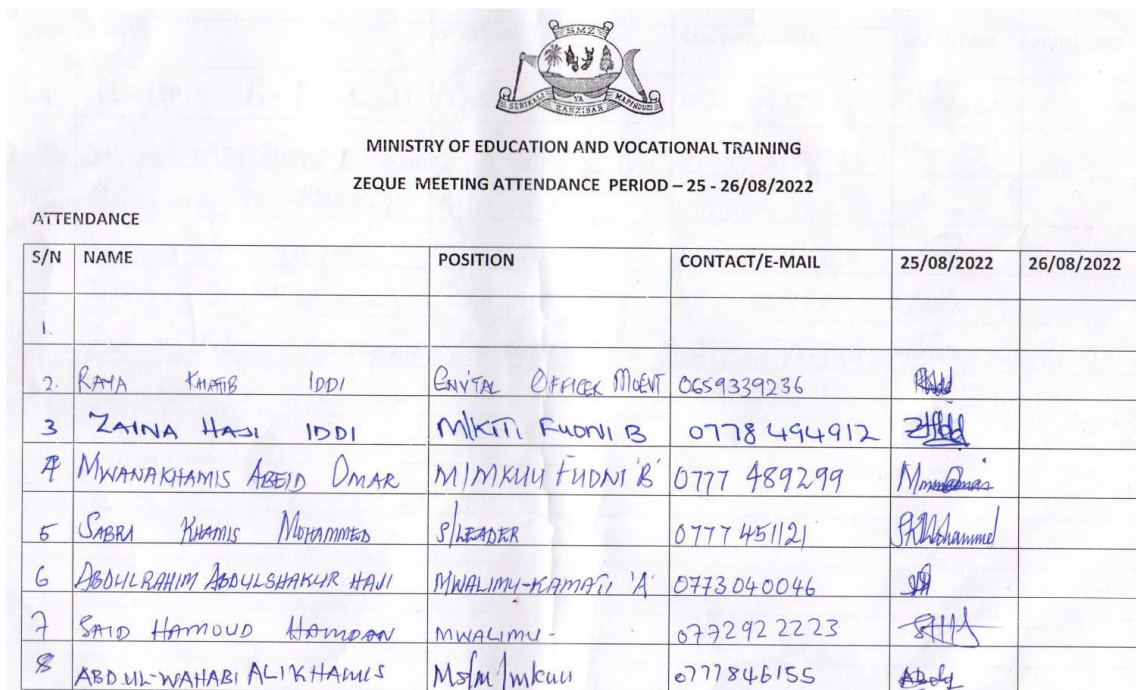 SMZ
SERIKALI YA MAPINDUZI
ZANZIBAR
MINISTRY OF EDUCATION AND VOCATIONAL TRAINING
ZEQUE MEETING ATTENDANCE PERIOD – 25 - 26/08/2022
ATTENDANCE
S/N NAME POSITION CONTACT/E-MAIL 25/08/2022 26/08/2022
1.
2. RAYA KHATIB IDDI OFFICER MOEVT 0659339236
3 ZAINA HAJI IDDI M/KITI FUONI B 0778 494912
4 MWANAKHAMIS ABEID OMAR M/MKUU FUONI 'B' 0777 489299
5 SABRA KHAMIS MOHAMMED S/LEADER 0777 451121 SKMohammed
6 ABDULRAHIM ABDULSHAKUR HAJI MWALIMU-KAMATI 'A' 0773040046
7 SAID HAMOUD HAMDAN MWALIMU- 0772922223
8 ABDUL-WAHABI ALI KHAMIS Ms/m/mkuu 0777846155